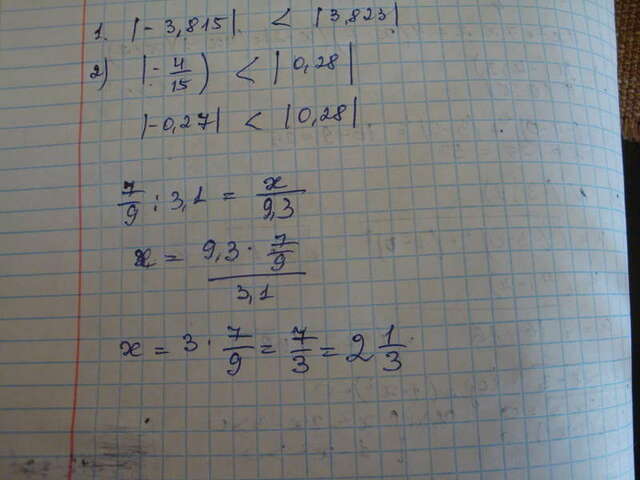 1. |-3,815| < |3,823|
2) |-4/15) < |0,28|
|-0,27| < |0,28|
7/9 : 3,1 = x/9,3
x = 9,3 · 7/9 / 3,1
x = 3 · 7/9 = 7/3 = 2 1/3